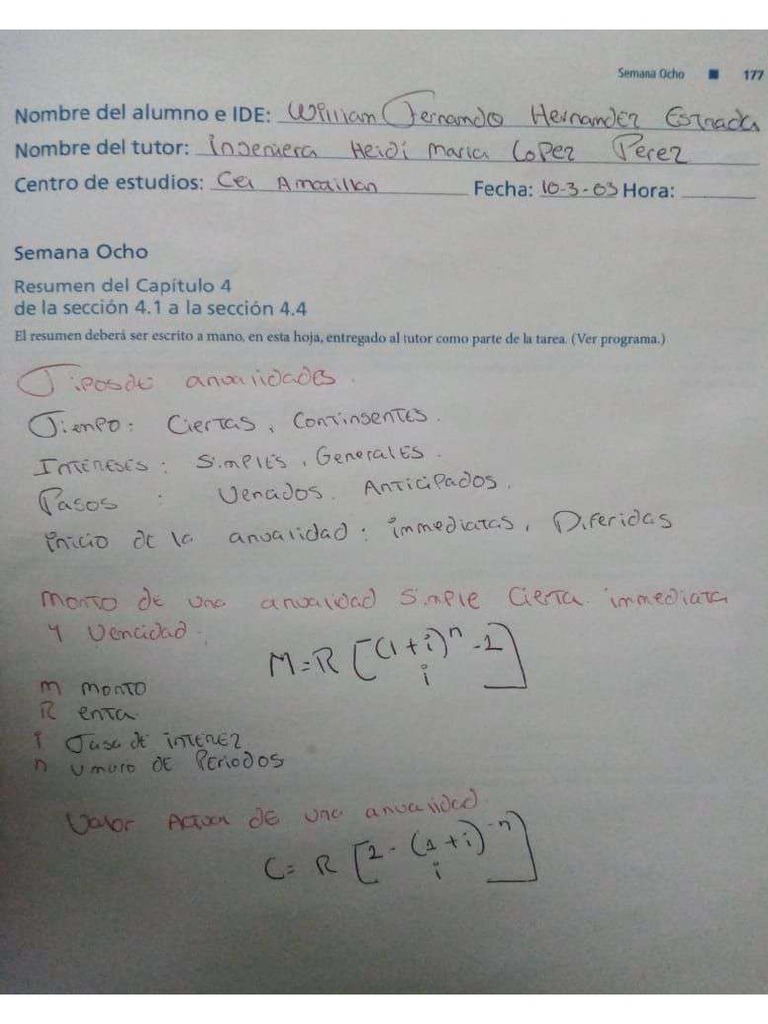 Semana Ocho ■ 177
Nombre del alumno e IDE: William Fernando Hernandez Estrada
Nombre del tutor: Ingeniera Heidi Maria Lopez Perez
Centro de estudios: Cei Amatitlan Fecha: 10-3-03 Hora:
Semana Ocho
Resumen del Capítulo 4
de la sección 4.1 a la sección 4.4
El resumen deberá ser escrito a mano, en esta hoja, entregado al tutor como parte de la tarea. (Ver programa.)
Tipos de anualidades.
Tienpo: Ciertas, Contingentes.
Intereses: Simples, Generales.
Pagos: Vencidos. Anticipados.
inicio de la anualidad: immediatas, Diferidas
Monto de una anualidad Simple Cierta immediata
y Vencidad.
M=R [(1+i)^n - 1 / i]
M monto
R enta
i Tasa de interez
n umuro de Periodos
Valor Actual de una anualidad
C= R [1 - (1+i)^-n / i]